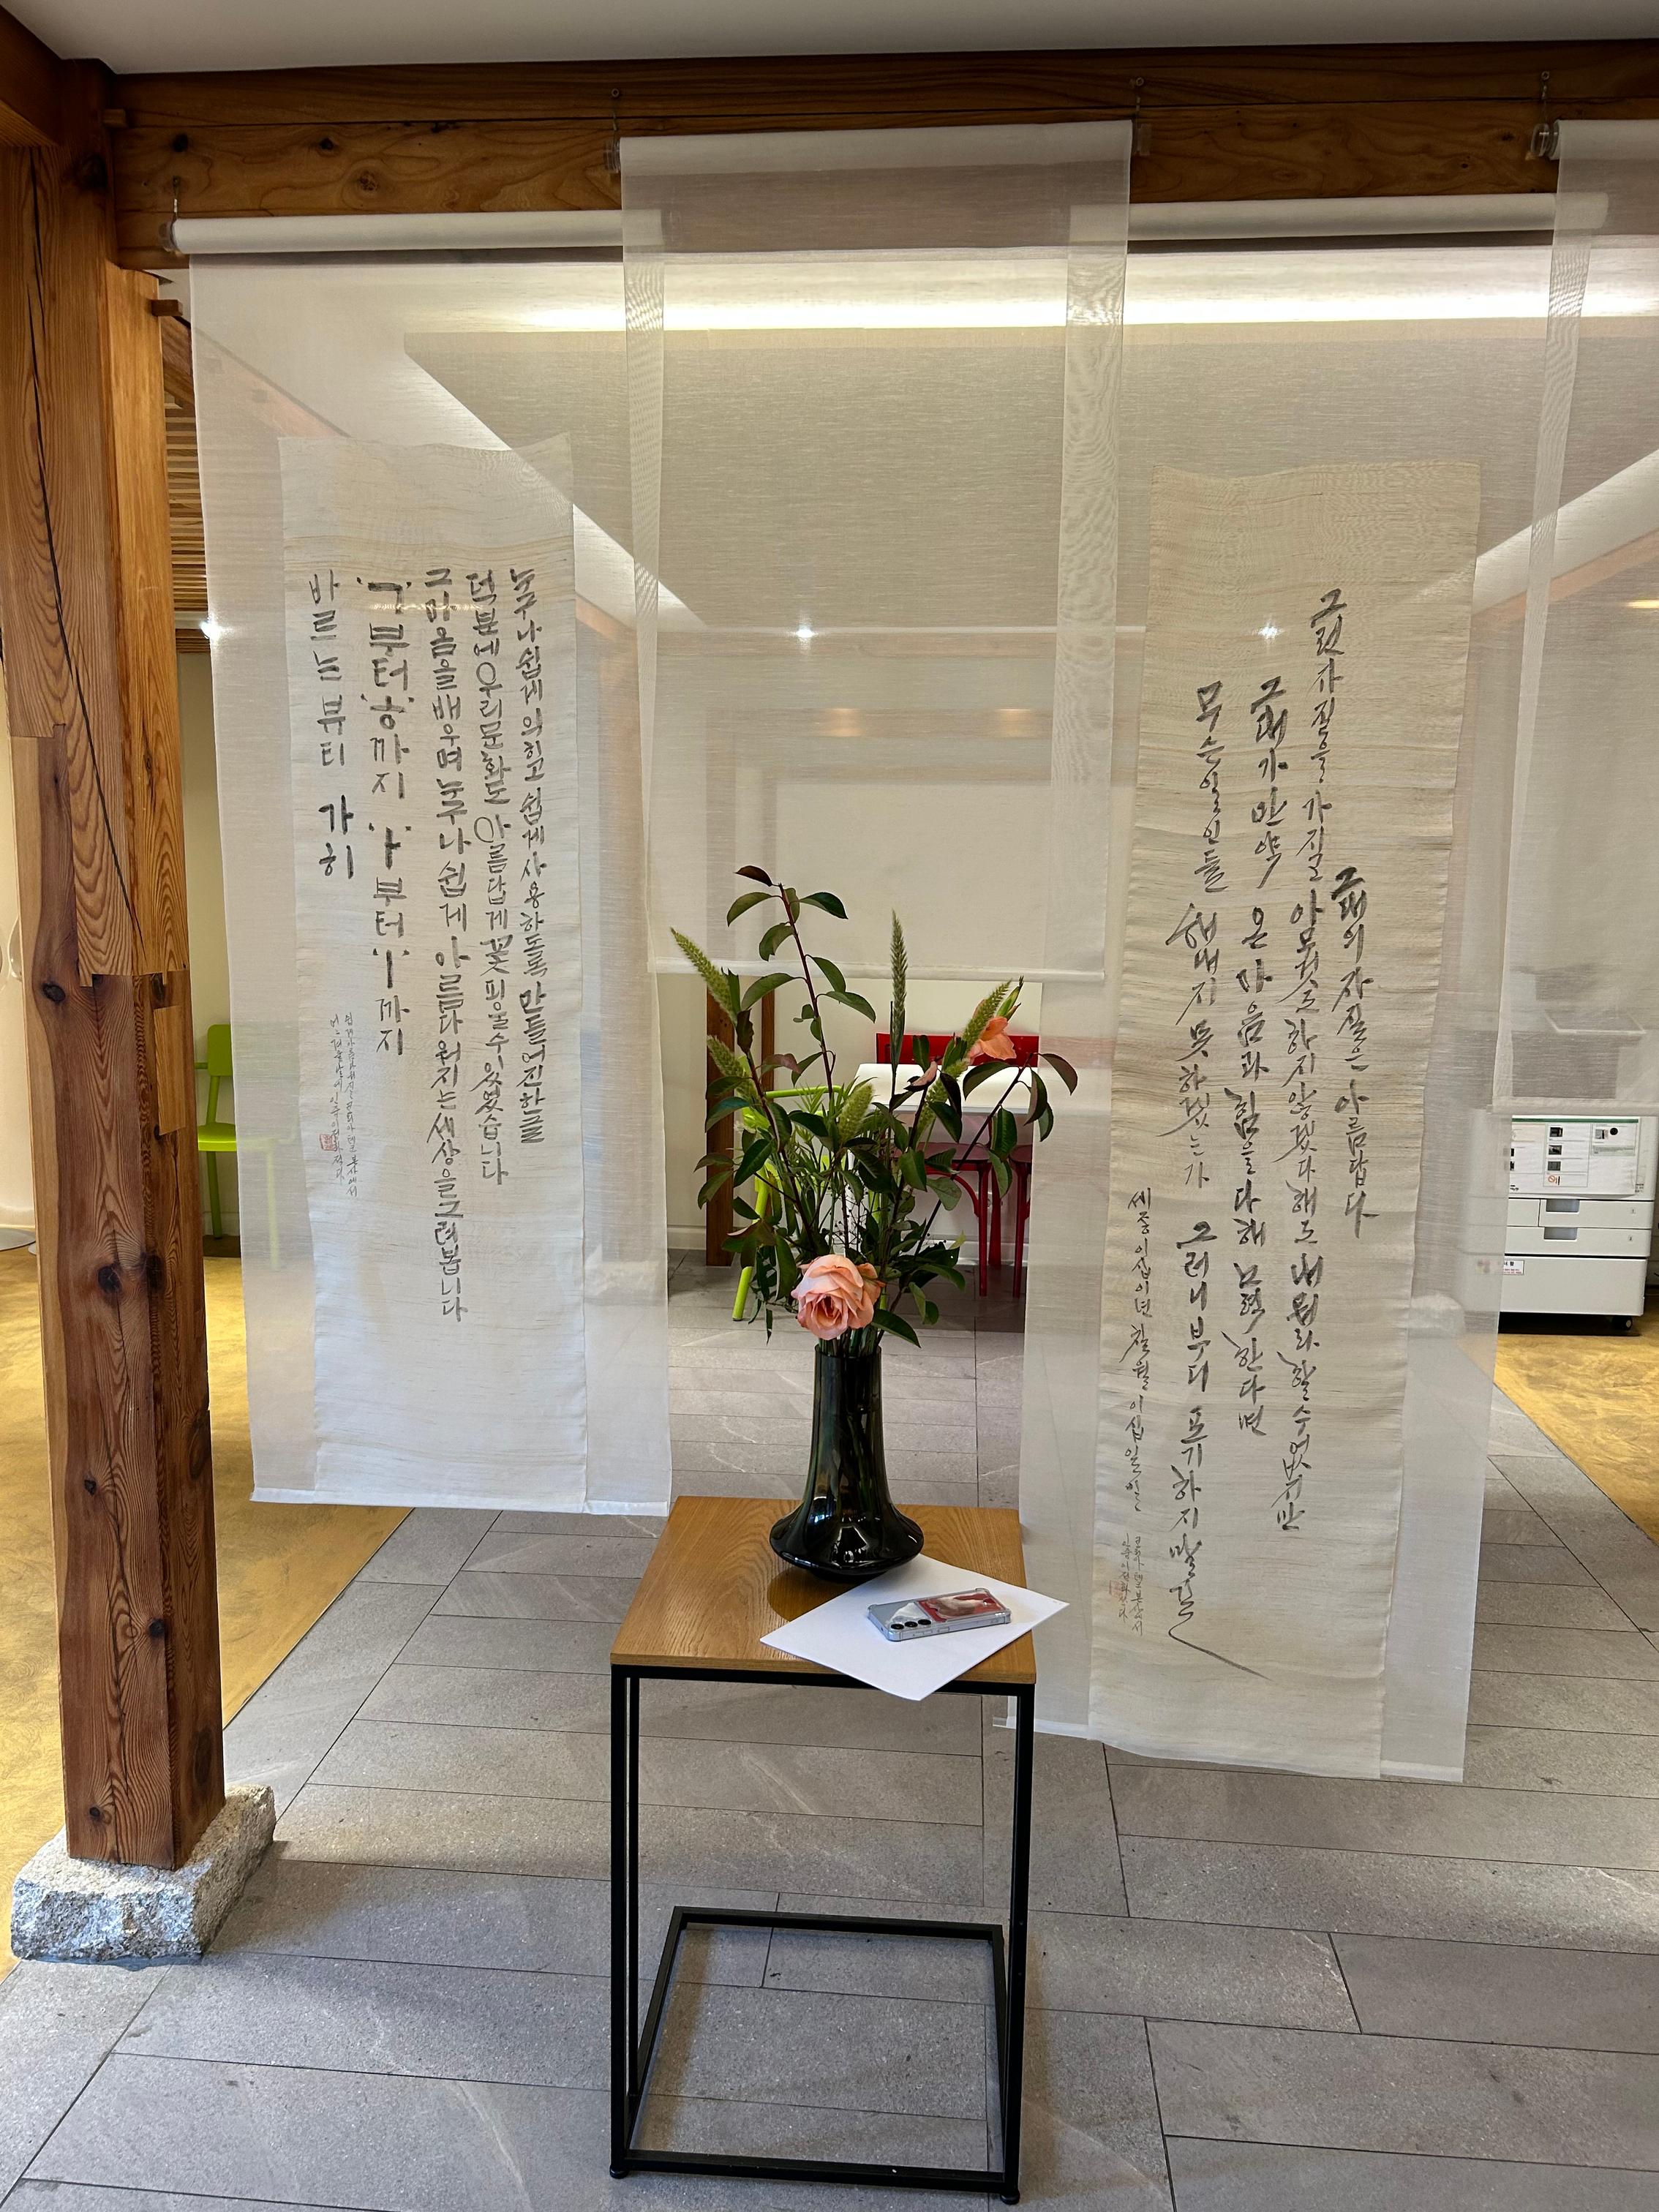 그대의 자질은 아름답다
그런 자질을 가지고 아무것도 하지 않겠다 해도 내 뭐라 할 수 없지만
그대가 만약 온 마음과 힘을 다해 노력한다면
무슨 일인들 해내지 못하겠는가 그러니 부디 포기하지 말길
세종 이십이년 칠월 이십일일
누구나 쉽게 익히고 쉽게 사용하도록 만들어진 한글
덕분에 우리 문화도 아름답게 꽃 피울 수 있었습니다
그 마음을 배우며 누구나 쉽게 아름다워지는 세상을 그려봅니다
'ㄱ'부터 'ㅎ'까지 'ㅏ'부터 'ㅣ'까지
바르는 뷰티 가히